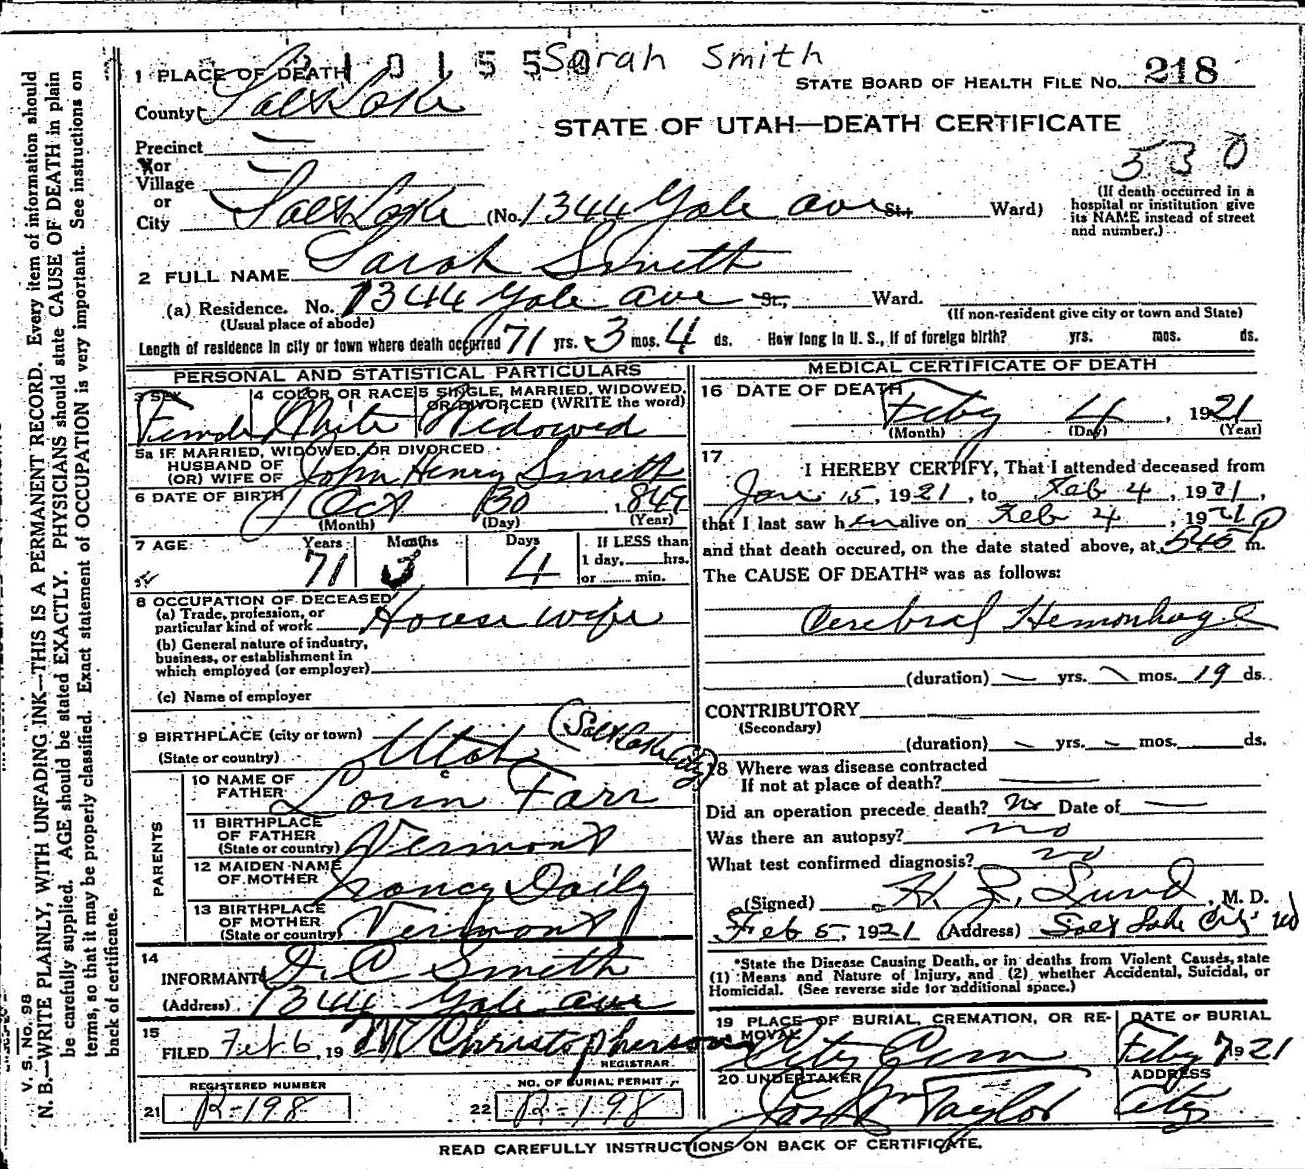 2101550 Sarah Smith
STATE BOARD OF HEALTH FILE NO. 218
1 PLACE OF DEATH
County Salt Lake
STATE OF UTAH—DEATH CERTIFICATE
Precinct
or
Village
or
City Salt Lake (No. 1344 Yale ave St., Ward)
530
(If death occurred in a hospital or institution give its NAME instead of street and number.)
2 FULL NAME Sarah Smith
(a) Residence. No. 1344 Yale ave St., Ward.
(Usual place of abode) (If non-resident give city or town and State)
Length of residence in city or town where death occurred 71 yrs. 3 mos. 4 ds. How long in U. S., if of foreign birth? yrs. mos. ds.
PERSONAL AND STATISTICAL PARTICULARS
3 SEX 4 COLOR OR RACE 5 SINGLE, MARRIED, WIDOWED, OR DIVORCED (WRITE the word)
Female White Widowed
5a IF MARRIED, WIDOWED, OR DIVORCED
HUSBAND OF
(OR) WIFE OF John Henry Smith
6 DATE OF BIRTH Oct 30 1849
(Month) (Day) (Year)
7 AGE Years Months Days If LESS than
71 3 4 1 day, hrs.
or min.
8 OCCUPATION OF DECEASED
(a) Trade, profession, or particular kind of work House wife
(b) General nature of industry, business, or establishment in which employed (or employer)
(c) Name of employer
9 BIRTHPLACE (city or town) (Salt Lake City)
(State or country) Utah
PARENTS
10 NAME OF FATHER Lorin Farr
11 BIRTHPLACE OF FATHER (State or country) Vermont
12 MAIDEN NAME OF MOTHER Nancy Daily
13 BIRTHPLACE OF MOTHER (State or country) Vermont
14
INFORMANT D. C. Smith
(Address) 1344 Yale ave
15
FILED Feb 6, 19 Christopherson
REGISTRAR.
REGISTERED NUMBER NO. OF BURIAL PERMIT
21 R-198 22 R-198
MEDICAL CERTIFICATE OF DEATH
16 DATE OF DEATH
Feby 4, 1921
(Month) (Day) (Year)
17
I HEREBY CERTIFY, That I attended deceased from
Jan 15, 1921, to Feb 4, 1921,
that I last saw her alive on Feb 4, 1921
and that death occured, on the date stated above, at 545 P m.
The CAUSE OF DEATH* was as follows:
Cerebral Hemorrhage
(duration) — yrs. — mos. 19 ds.
CONTRIBUTORY
(Secondary)
(duration) — yrs. — mos. ds.
18 Where was disease contracted
If not at place of death?
Did an operation precede death? No Date of —
Was there an autopsy? no
What test confirmed diagnosis? no
(Signed) Lund, M. D.
Feb 5, 1921 (Address) Salt Lake City
*State the Disease Causing Death, or in deaths from Violent Causes, state
(1) Means and Nature of Injury, and (2) whether Accidental, Suicidal, or
Homicidal. (See reverse side for additional space.)
19 PLACE OF BURIAL, CREMATION, OR RE- DATE OF BURIAL
MOVAL City Cem Feby 7 1921
20 UNDERTAKER ADDRESS
Taylor City
READ CAREFULLY INSTRUCTIONS ON BACK OF CERTIFICATE.
V. S. NO. 98
N. B.—WRITE PLAINLY, WITH UNFADING INK—THIS IS A PERMANENT RECORD. Every item of information should
be carefully supplied. AGE should be stated EXACTLY. PHYSICIANS should state CAUSE OF DEATH in plain
terms, so that it may be properly classified. Exact statement of OCCUPATION is very important. See instructions on
back of certificate.